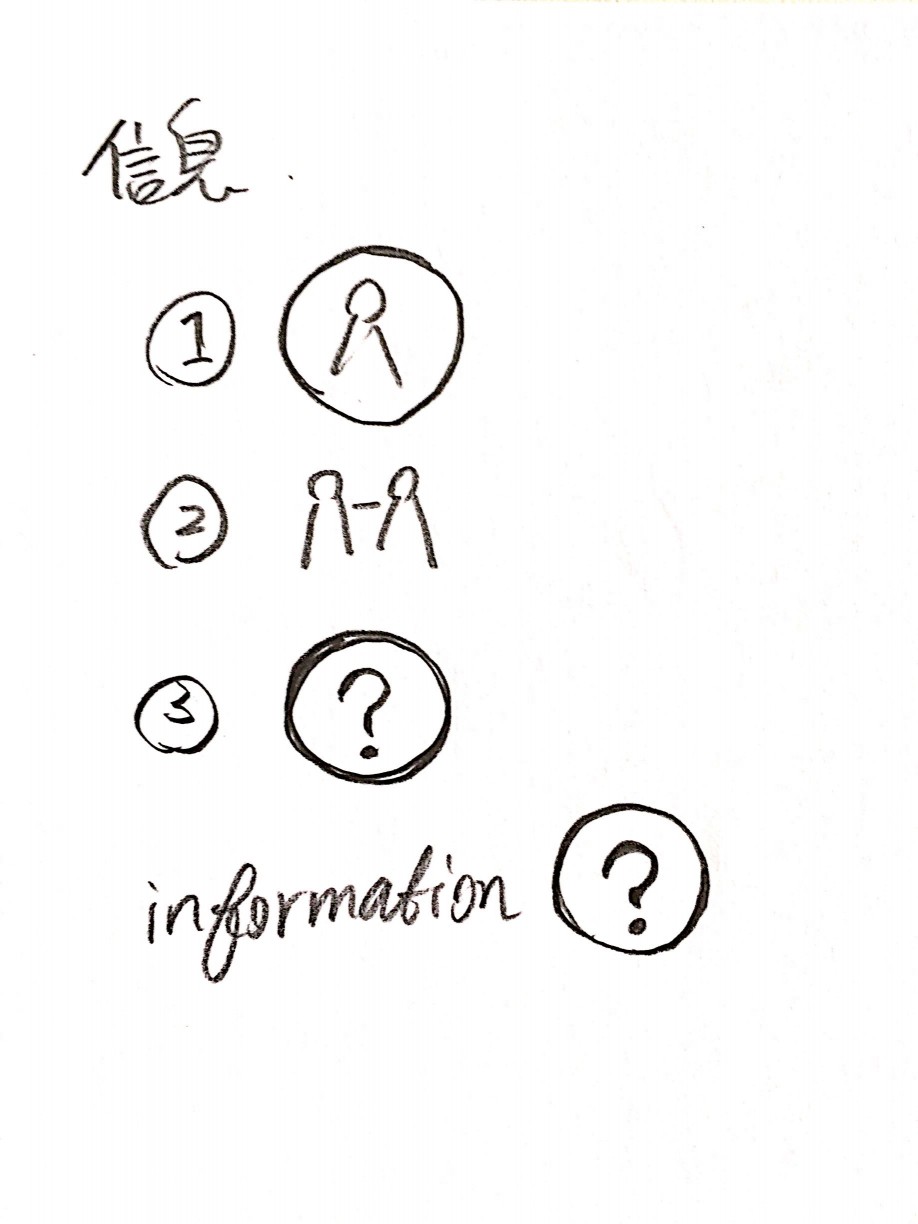 信息.
①
②
③ ?
information ?